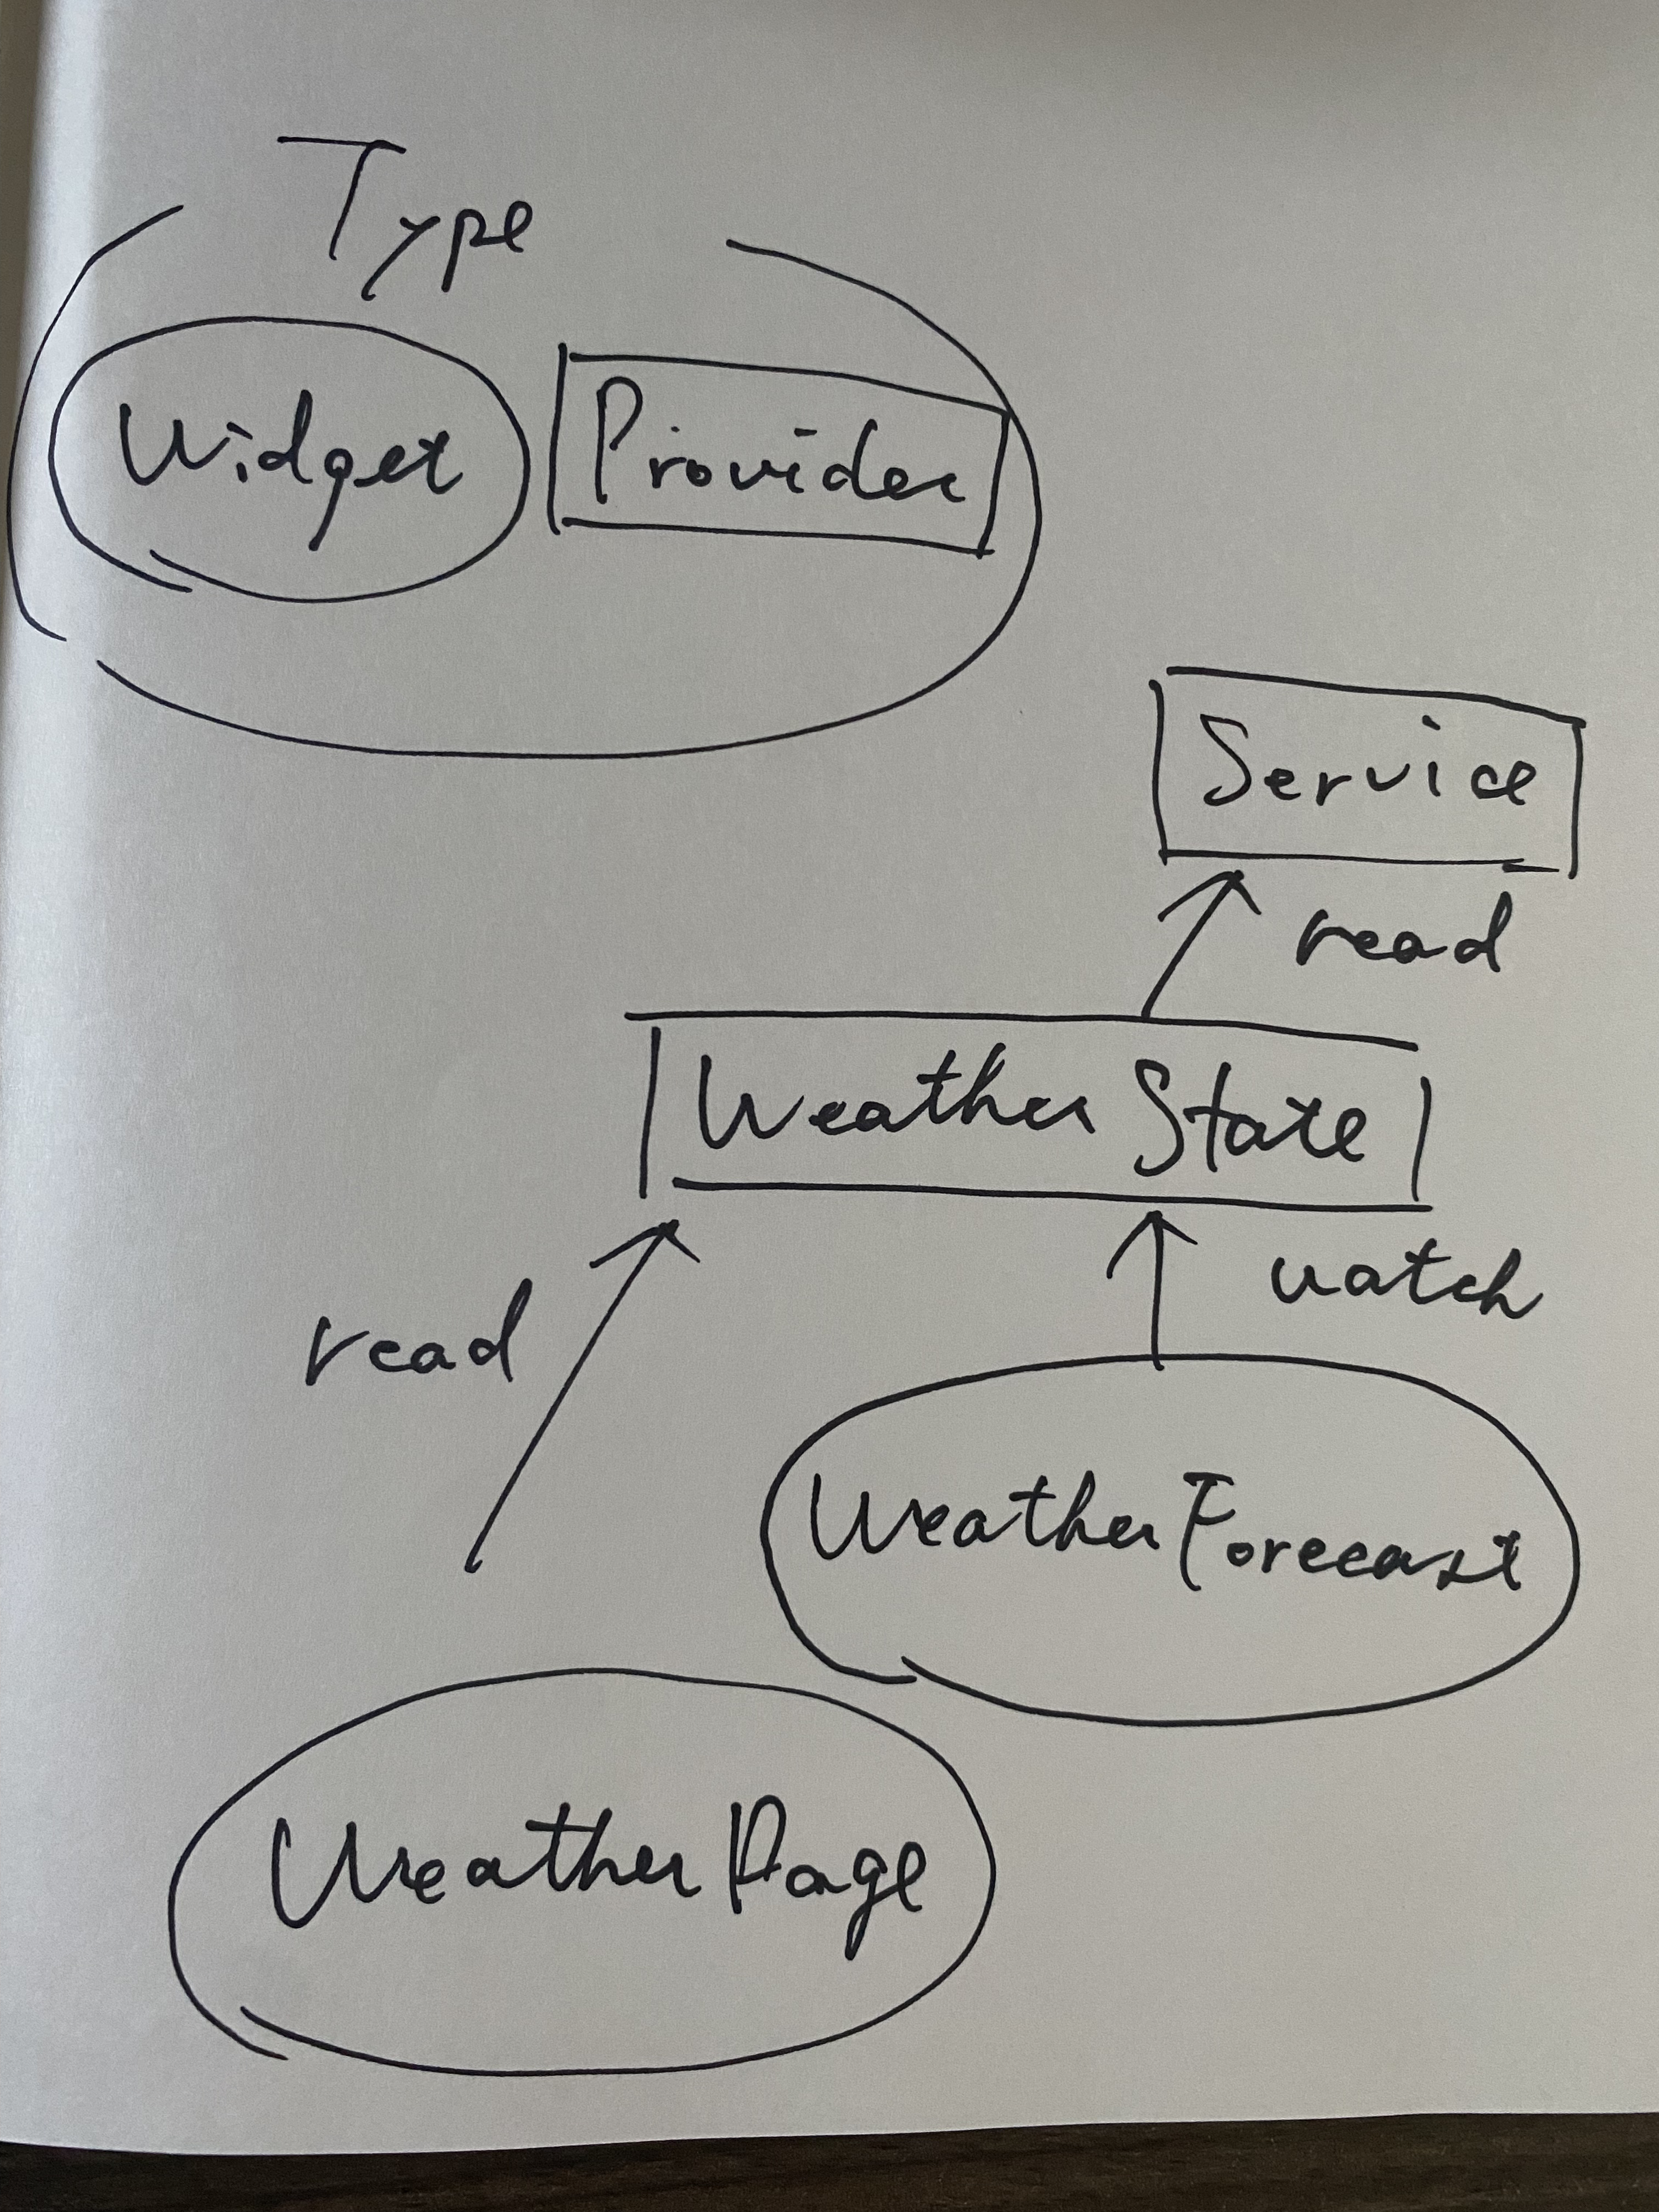 Type
Widget Provider
Service
read
Weather State
read
watch
WeatherForecast
WeatherPage